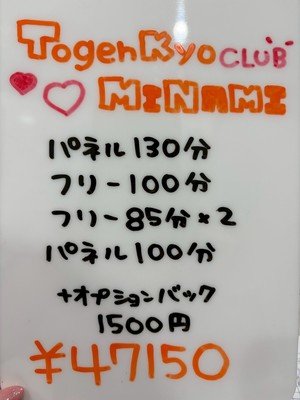 TogenKyo CLUB
MiNAMi
パネル130分
フリー100分
フリー85分×2
パネル100分
+オプションバック
1500円
¥47150